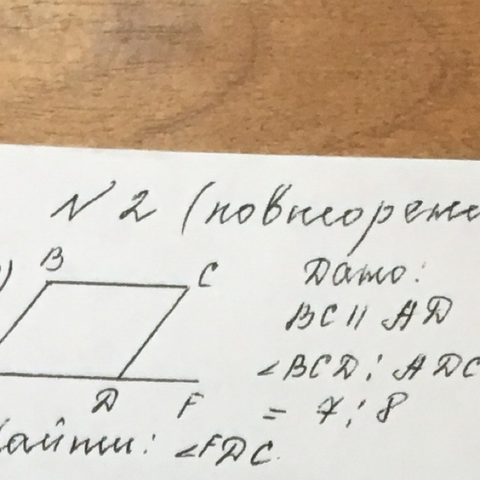 № 2 (повторени
B
C
D
F
Дано:
BC || AD
∠BCD : ADC
= 7 : 8
Найти: ∠FDC.